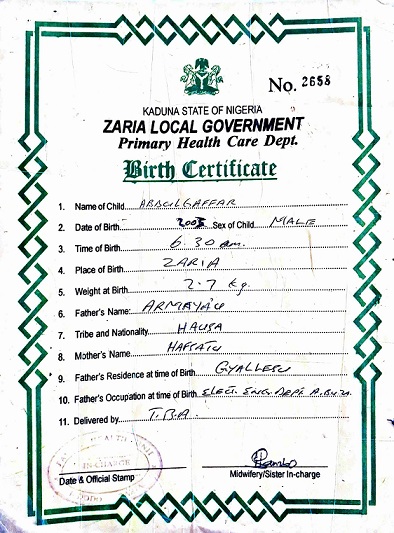 No. 2658
KADUNA STATE OF NIGERIA
ZARIA LOCAL GOVERNMENT
Primary Health Care Dept.
Birth Certificate
1. Name of Child ABDULGAFFAR
2. Date of Birth 2005 Sex of Child MALE
3. Time of Birth 6.30 am.
4. Place of Birth ZARIA
5. Weight at Birth 2.7 kg.
6. Father's Name: ARMAYA'U
7. Tribe and Nationality HAUSA
8. Mother's Name HAFSATU
9. Father's Residence at time of Birth GYALLESU
10. Father's Occupation at time of Birth ELECT. ENG. DEPT. A.B.U.Z.
11. Delivered by T.B.A.
IN-CHARGE
Date & Official Stamp
Midwifery/Sister In-charge